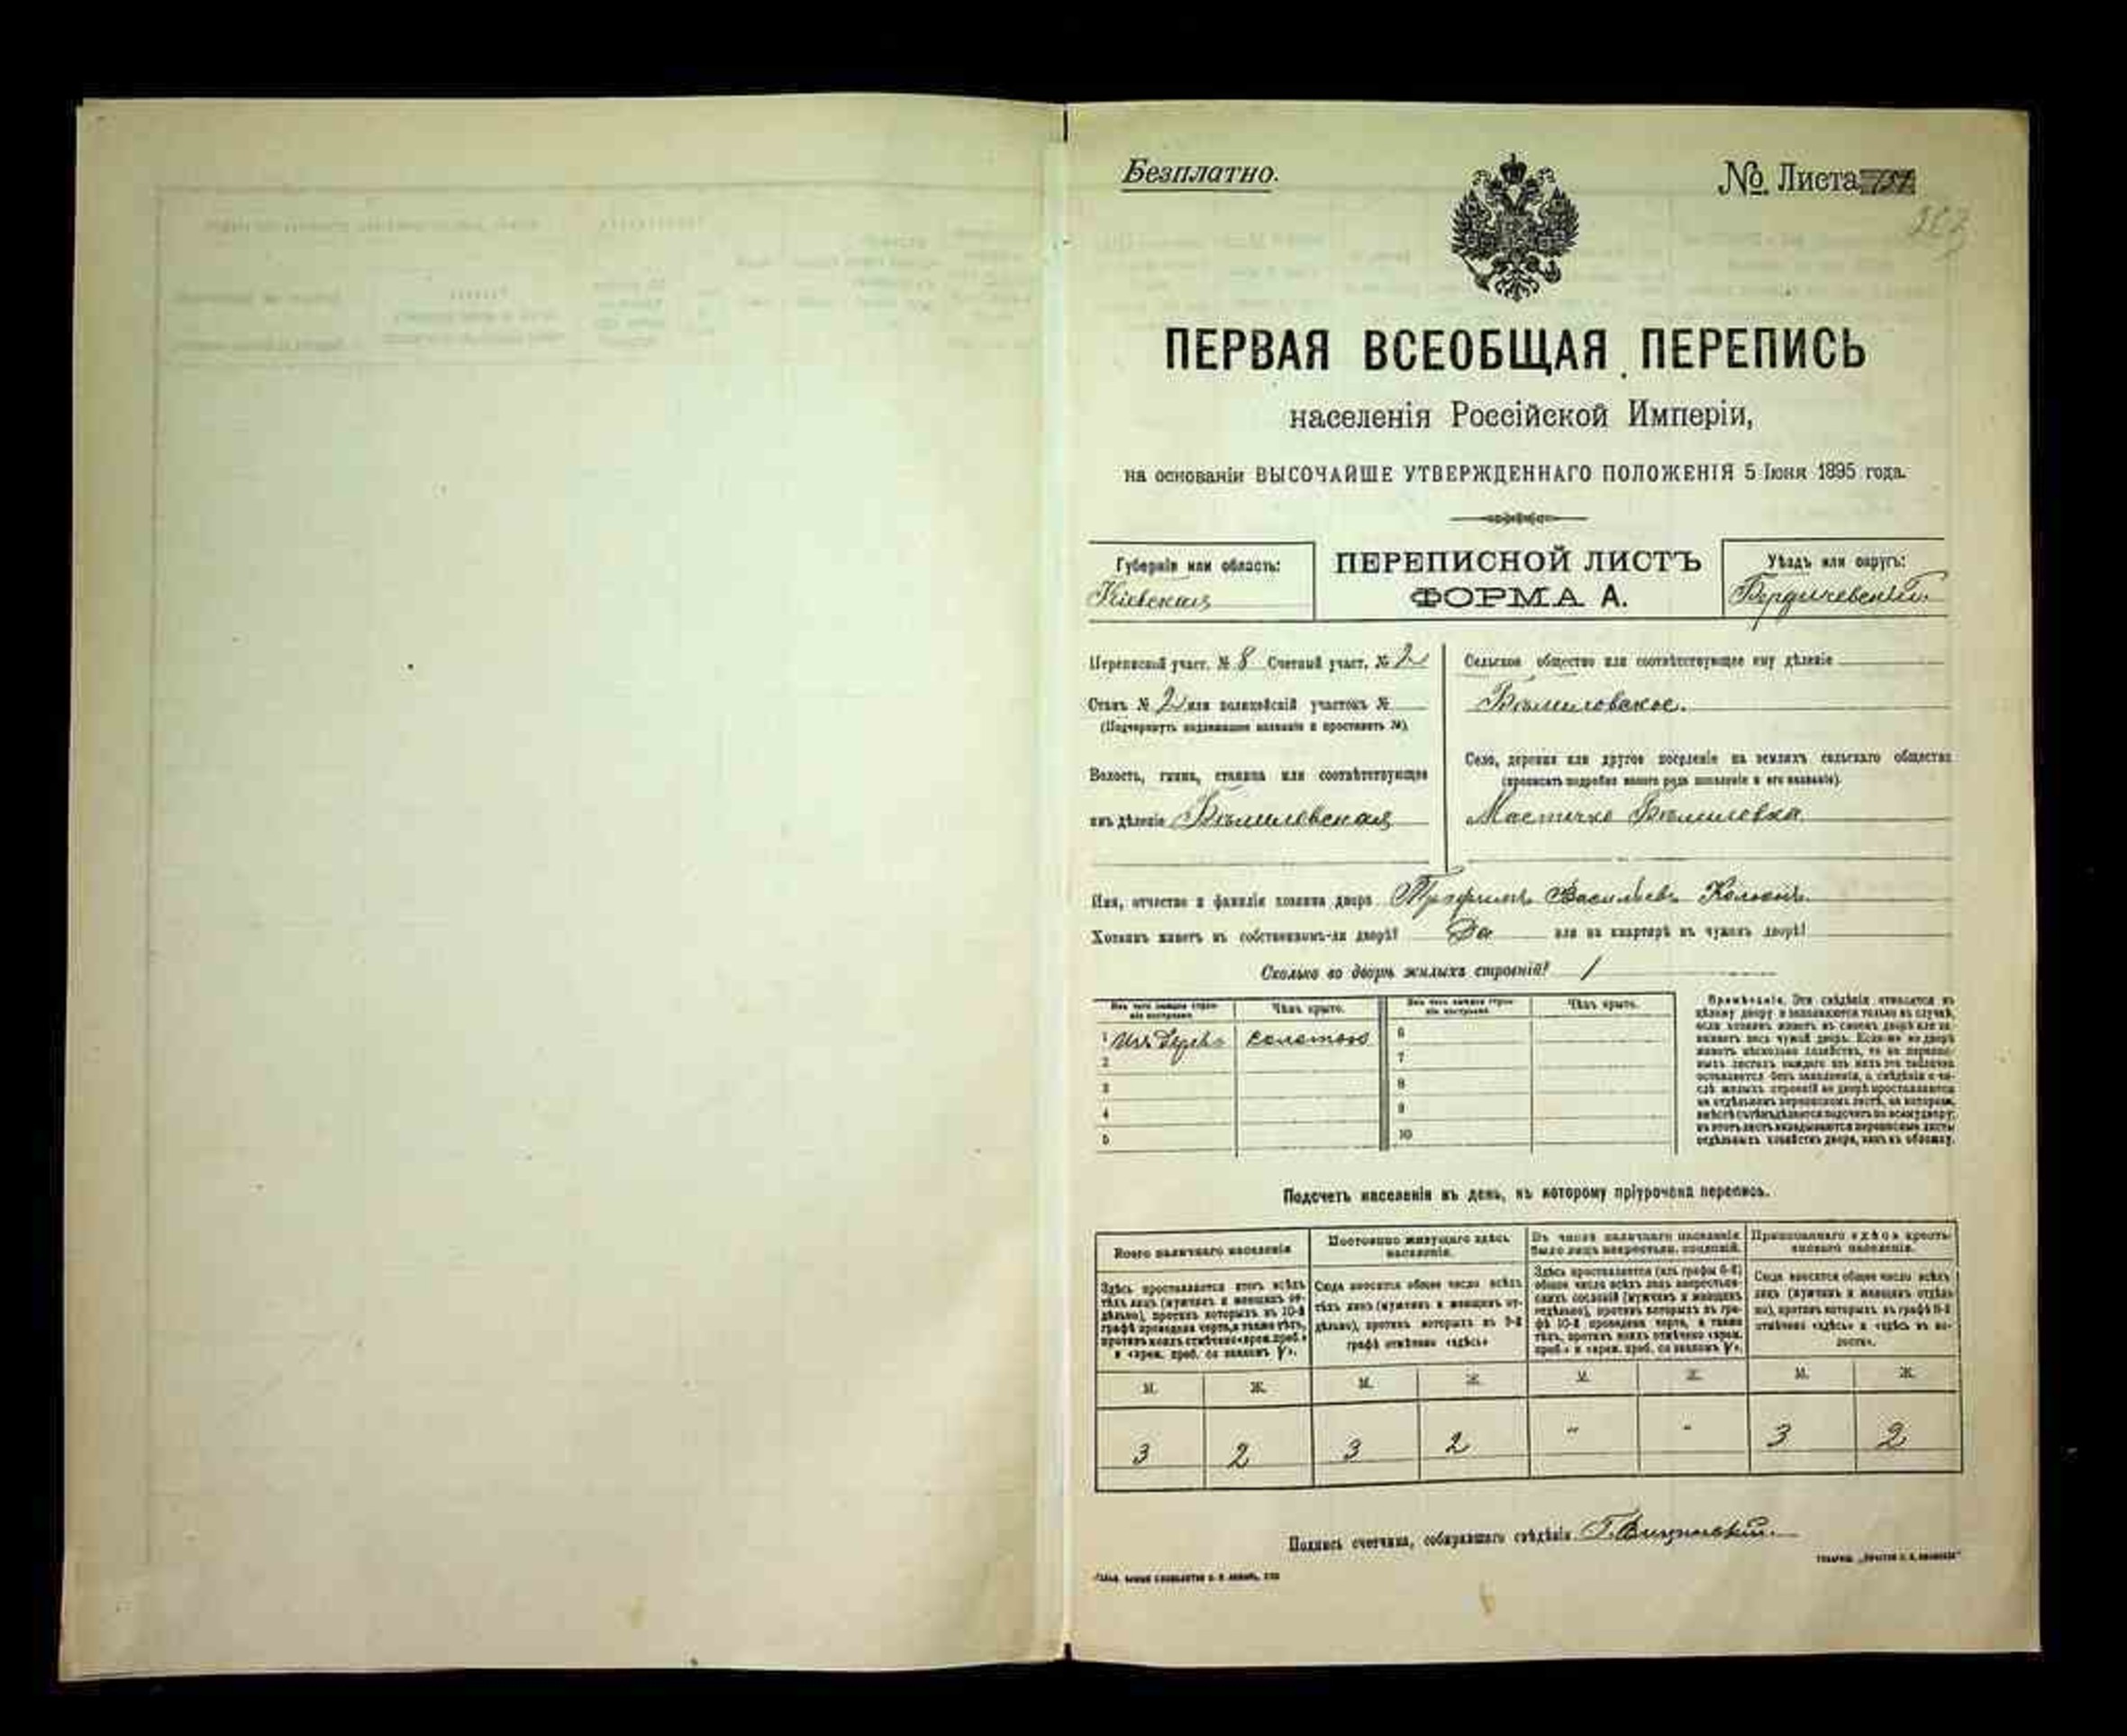 Безплатно.
№ Листа
ПЕРВАЯ ВСЕОБЩАЯ ПЕРЕПИСЬ
населенія Россійской Имперіи,
на основаніи ВЫСОЧАЙШЕ УТВЕРЖДЕННАГО ПОЛОЖЕНІЯ 5 Іюня 1895 года.
Губернія или область:
Кіевская
ПЕРЕПИСНОЙ ЛИСТЪ
ФОРМА А.
Уѣздъ или округъ:
Бердичевскій
Переписной участ. № 8 Счетный участ. № 2
Станъ № 2 или полицейскій участокъ №
(Подчеркнуть надлежащее названіе и проставить №).
Волость, гмина, станица или соотвѣтствующее
имъ дѣленіе Бѣлиловская
Сельское общество или соотвѣтствующее ему дѣленіе
Бѣлиловское.
Село, деревня или другое поселеніе на земляхъ сельскаго общества
(прописать подробно какого рода поселеніе и его названіе).
Мѣстечко Бѣлиловка
Имя, отчество и фамилія хозяина двора Трофимъ Васильевъ
Хозяинъ живетъ въ собственномъ-ли дворѣ? Да или на квартирѣ въ чужомъ дворѣ?
Сколько во дворѣ жилыхъ строеній? 1
Изъ чего каждое строеніе построено.
Чѣмъ крыто.
Изъ чего каждое строеніе построено.
Чѣмъ крыто.
1 Изъ дерева соломою 6
2 7
3 8
4 9
5 10
Примѣчаніе. Эти свѣдѣнія относятся къ
цѣлому двору и заполняются только въ случаѣ,
если хозяинъ живетъ въ своемъ дворѣ или за-
нимаетъ весь чужой дворъ. Если-же во дворѣ
живетъ нѣсколько хозяйствъ, то въ перепис-
ныхъ листахъ каждаго изъ нихъ эта табличка
оставляется безъ заполненія, а свѣдѣнія о чи-
слѣ жилыхъ строеній во дворѣ проставляются
на отдѣльномъ переписномъ листѣ, на которомъ
вмѣстѣ съ тѣмъ дѣлается подсчетъ по всему двору;
въ этотъ листъ вкладываются переписные листы
отдѣльныхъ хозяйствъ двора, какъ въ обложку.
Подсчетъ населенія въ день, къ которому пріурочена перепись.
Всего наличнаго населенія
Постоянно живущаго здѣсь
населенія.
Въ числѣ наличнаго населенія
было лицъ некрестьян. сословій.
Приписаннаго здѣсь кресть-
янскаго населенія.
Здѣсь проставляется итогъ всѣхъ
тѣхъ лицъ (мужчинъ и женщинъ от-
дѣльно), противъ которыхъ въ 10-й
графѣ проведена черта, а также тѣхъ,
противъ коихъ отмѣчено «врем. преб.»
и «врем. преб. со знакомъ V».
Сюда вносится общее число всѣхъ
тѣхъ лицъ (мужчинъ и женщинъ от-
дѣльно), противъ которыхъ въ 9-й
графѣ отмѣчено «здѣсь»
Здѣсь проставляется (изъ графы 6-й)
общее число всѣхъ лицъ некрестьян-
скихъ сословій (мужчинъ и женщинъ
отдѣльно), противъ которыхъ въ гра-
фѣ 10-й проведена черта, а также
тѣхъ, противъ коихъ отмѣчено «врем.
преб.» и «врем. преб. со знакомъ V».
Сюда вносится общее число всѣхъ
лицъ (мужчинъ и женщинъ отдѣль-
но), противъ которыхъ въ графѣ 8-й
отмѣчено «здѣсь» и «здѣсь въ во-
лости».
М. Ж. М. Ж. М. Ж. М. Ж.
3 2 3 2 " " 3 2
Подпись счетчика, собиравшаго свѣдѣнія